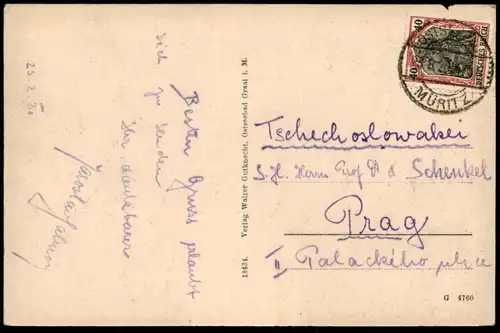 23. 2. 21
Besten Gruss erlaubt
sich zu senden
Ihr dankbarer
18434. Verlag Walter Gutknecht, Ostseebad Graal i. M.
40 40
DEUTSCHES REICH
MÜRITZ
Tschechoslowakei
S. H. Herrn Prof Dr Schenkel
Prag
II Palackého ulice
G 4760